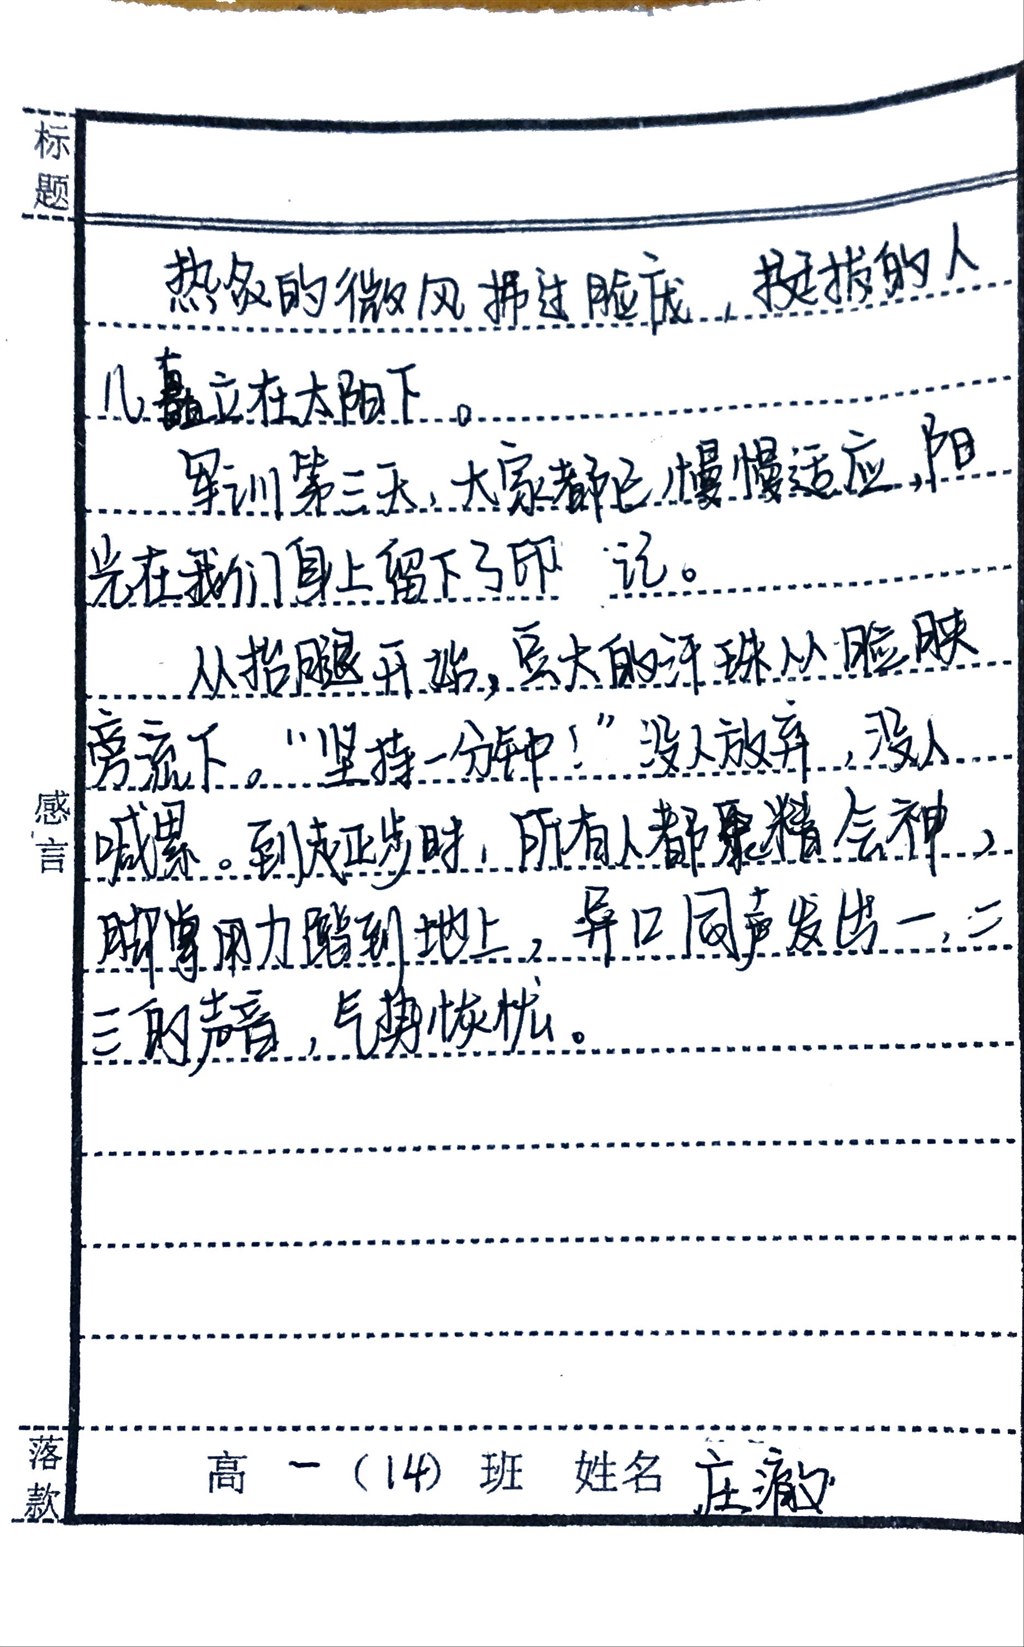 标题
热炙的微风拂过脸庞，挺拔的人
儿矗立在太阳下。
军训第三天，大家都已慢慢适应，阳
光在我们身上留下了印 记。
从抬腿开始，豆大的汗珠从脸颊
旁流下。“坚持一分钟！”没人放弃，没人
感言
喊累。到走正步时，所有人都聚精会神，
脚掌用力踏到地上，异口同声发出一、二
三的声音，气势恢
落款
高一（14）班 姓名 庄